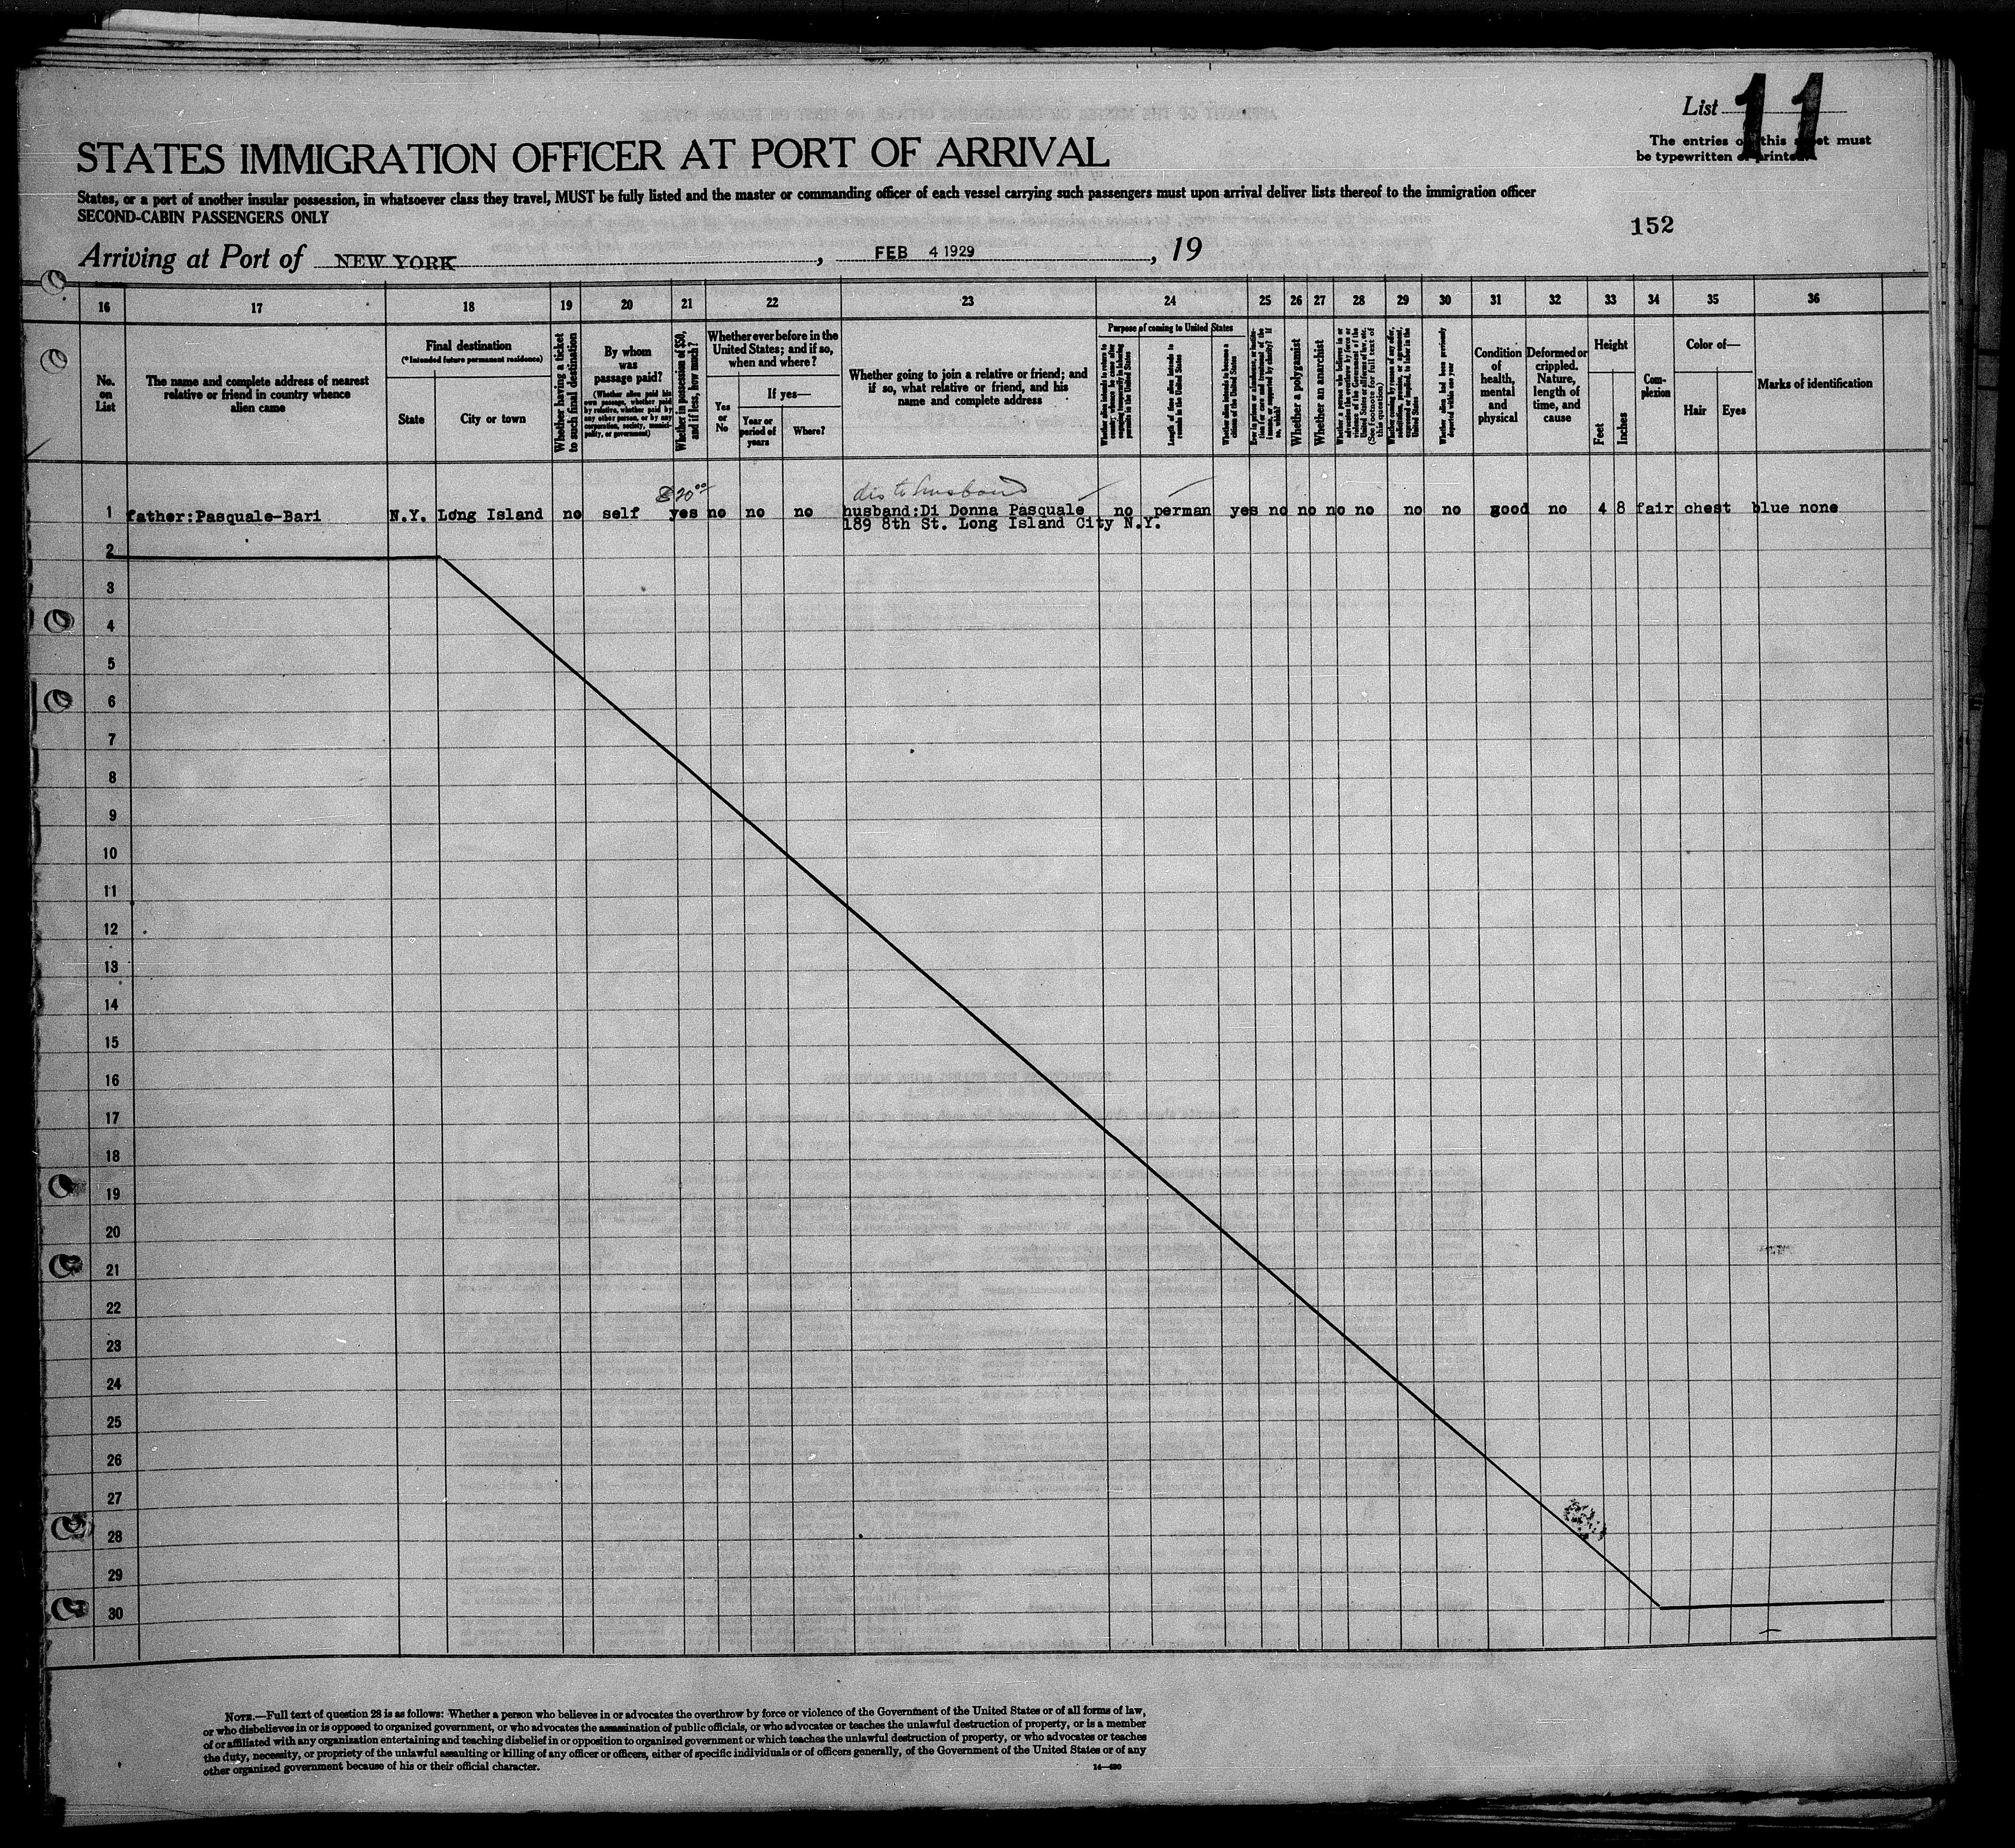 List 11
The entries on this sheet must
be typewritten or printed.
STATES IMMIGRATION OFFICER AT PORT OF ARRIVAL
States, or a port of another insular possession, in whatsoever class they travel, MUST be fully listed and the master or commanding officer of each vessel carrying such passengers must upon arrival deliver lists thereof to the immigration officer
SECOND-CABIN PASSENGERS ONLY
152
Arriving at Port of NEW YORK, FEB 4 1929, 19
16 17 18 19 20 21 22 23 24 25 26 27 28 29 30 31 32 33 34 35 36
No.
on
List
The name and complete address of nearest
relative or friend in country whence
alien came
Final destination
(*Intended future permanent residence)
State
City or town
Whether having a ticket
to such final destination
By whom
was
passage paid?
(Whether alien paid his
own passage, whether paid
by relative, whether paid by
any other person, or by any
corporation, society, munici-
pality, or government)
Whether in possession of $50,
and if less, how much?
Whether ever before in the
United States; and if so,
when and where?
Yes
or
No
If yes—
Year or
period of
years
Where?
Whether going to join a relative or friend; and
if so, what relative or friend, and his
name and complete address
Purpose of coming to United States
Length of time alien intends to
remain in the United States
Whether alien intends to become a
citizen of the United States
Whether a polygamist
Whether an anarchist
(See footnote for full text of
this question)
Whether alien had been previously
deported within one year
Condition
of
health,
mental
and
physical
Deformed or
crippled.
Nature,
length of
time, and
cause
Height
Feet
Inches
Com-
plexion
Color of—
Hair
Eyes
Marks of identification
$20⁰⁰
dis to husband
1 father:Pasquale-Bari N.Y. Long Island no self yes no no no husband:Di Donna Pasquale no perman yes no no no no no no good no 4 8 fair chest blue none
189 8th St. Long Island City N.Y.
2
3
4
5
6
7
8
9
10
11
12
13
14
15
16
17
18
19
20
21
22
23
24
25
26
27
28
29
30
NOTE.—Full text of question 28 is as follows: Whether a person who believes in or advocates the overthrow by force or violence of the Government of the United States or of all forms of law,
or who disbelieves in or is opposed to organized government, or who advocates the assassination of public officials, or who advocates or teaches the unlawful destruction of property, or is a member
of or affiliated with any organization entertaining and teaching disbelief in or opposition to organized government or which teaches the unlawful destruction of property, or who advocates or teaches
the duty, necessity, or propriety of the unlawful assaulting or killing of any officer or officers, either of specific individuals or of officers generally, of the Government of the United States or of any
other organized government because of his or their official character.
14—480